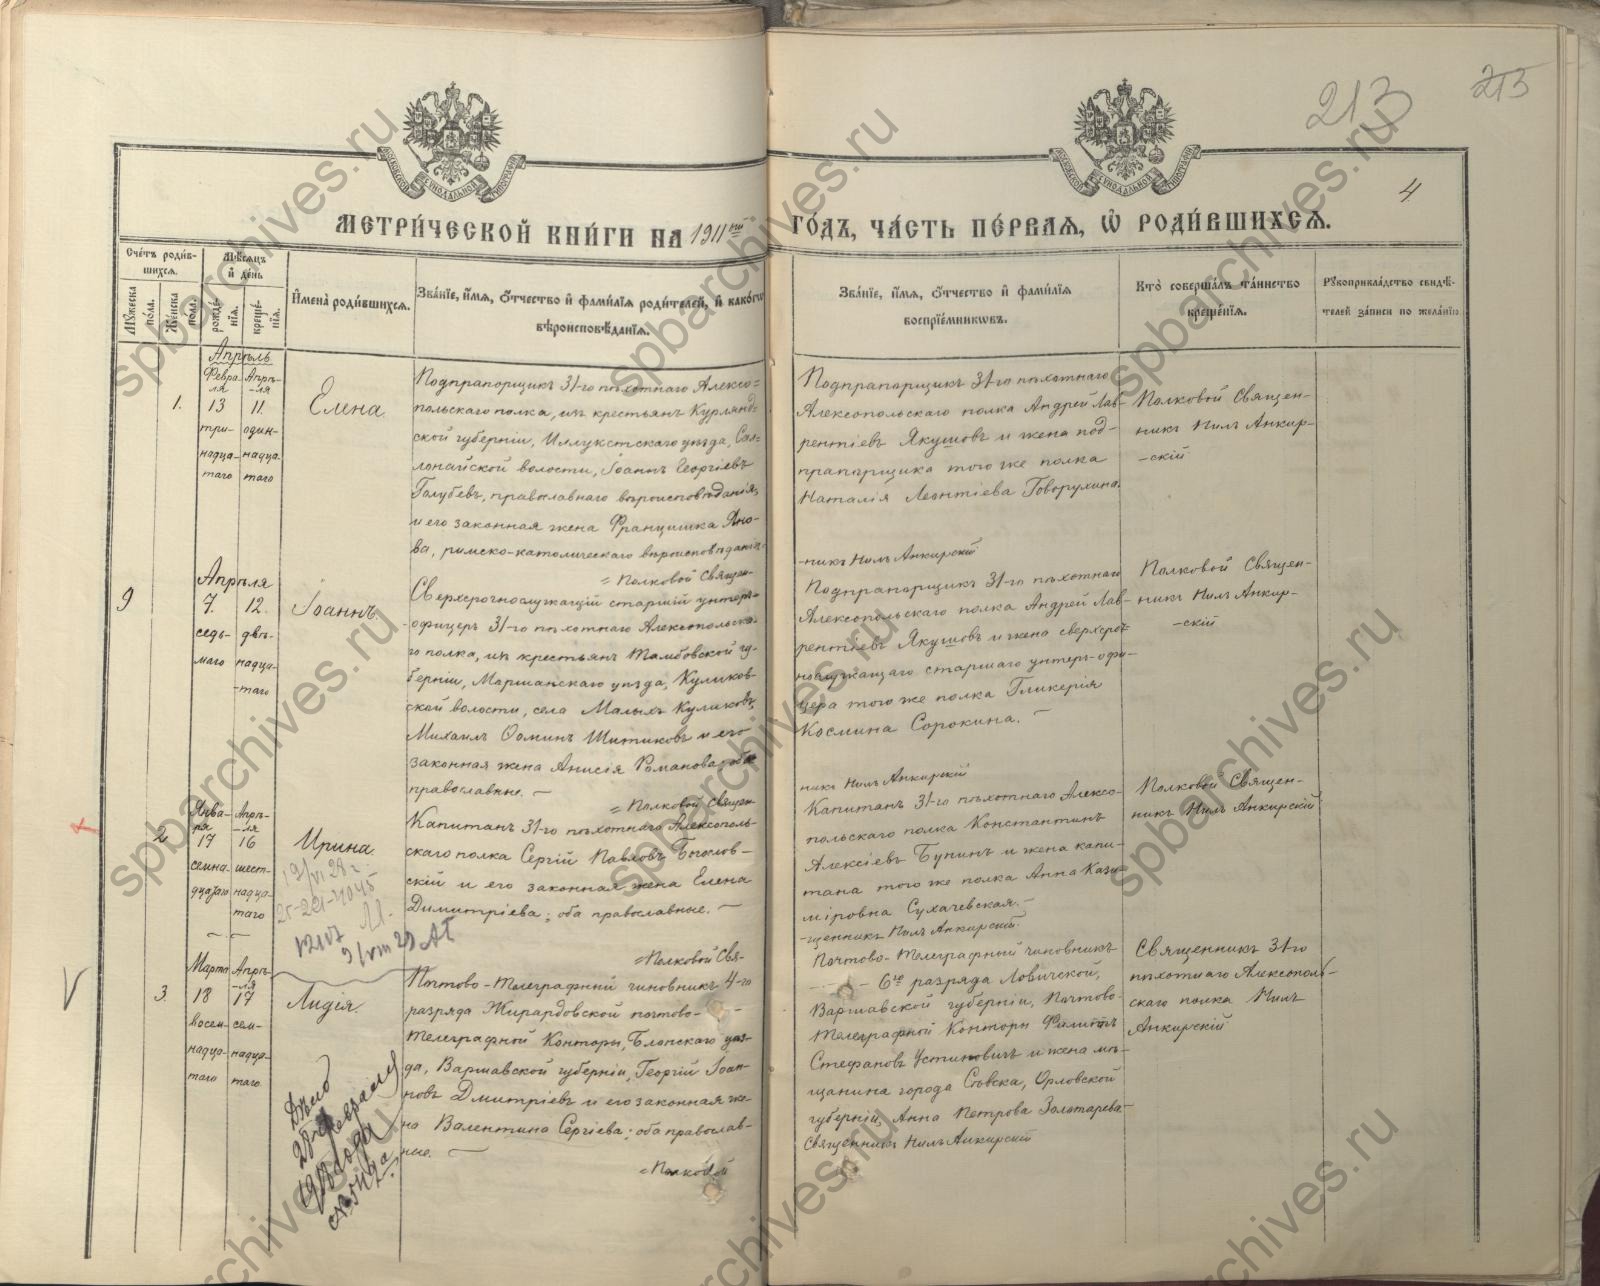 213
213
4
МОСКОВСКОЙ СѴНОДАЛЬНОЙ ТИПОГРАФІИ
МОСКОВСКОЙ СѴНОДАЛЬНОЙ ТИПОГРАФІИ
МЕТРИ́ЧЕСКОЙ КНИ́ГИ НА 1911ый ГО́ДЪ, ЧА́СТЬ ПЕ́РВАЯ, Ѡ҆ РОДИ́ВШИХСЯ.
Сче́тъ роди́в-
шихся.
Му́жеска
по́ла.
Же́нска
по́ла.
Мѣ́сяцъ
и҆ де́нь
рожде́-
нїя.
креще́-
нїя.
И҆мена̀ роди́вшихся.
Зва́нїе, и҆́мя, ѻ҆́тчество и҆ фами́лїя роди́телей, и҆ како́гѡ
вѣроисповѣ́данїя.
Зва́нїе, и҆́мя, ѻ҆́тчество и҆ фами́лїя
воспрїе́мникѡвъ.
Кто̀ соверша́лъ та́инство
креще́нїя.
Рꙋкоприкла́дство свидѣ́-
телей за́писи по жела́нїю
Апрѣль
1.
Февра-
ля
13
три-
надца-
таго
Апрѣ-
-ля
11.
один-
надца-
таго
Елена.
Подпрапорщикъ 31-го пѣхотнаго Алексо=
польскаго полка, изъ крестьянъ Курлянд=
ской губерніи, Иллукстскаго уѣзда, Сал=
лонайской волости, Іоаннъ Георгіевъ
Голубевъ, православнаго вѣроисповѣданія,
и его законная жена Францишка Яно-
ва, римско-католическаго вѣроисповѣданія.
= Полковой Священ-
Подпрапорщикъ 31-го пѣхотнаго
Алексопольскаго полка Андрей Лав-
рентіевъ Якушовъ и жена под-
прапорщика того же полка
Наталія Леонтіева Говорухина.
-никъ Нилъ Анкирскій
Полковой Священ-
никъ Нилъ Анкир-
-скій
9
Апрѣля
7.
седь-
маго
12.
двѣ-
надца-
-таго
Іоаннъ.
Сверхсрочнослужащій старшій унтеръ-
-офицеръ 31-го пѣхотнаго Алексопольска-
го полка, изъ крестьянъ Тамбовской гу-
берніи, Моршанскаго уѣзда, Куликов-
ской волости, села Малыхъ Куликовъ,
Михаилъ Ѳоминъ Шитиковъ и его
законная жена Анисія Романова; оба
православные. —
= Полковой Священ-
Подпрапорщикъ 31-го пѣхотнаго
Алексопольскаго полка Андрей Лав-
рентіевъ Якушовъ и жена сверхсроч-
нослужащаго старшаго унтеръ-офи-
цера того же полка Гликерія
Космина Сорокина. —
никъ Нилъ Анкирскій
Полковой Священ-
никъ Нилъ Анкир-
-скій
2
Янва-
ря
17
семна-
дцатаго
Апрѣ-
-ля
16
шест-
надца-
таго
Ирина.
9/VIII 29
Капитанъ 31-го пѣхотнаго Алексополь-
скаго полка Сергій Павловъ Богослов-
скій и его законная жена Елена
Димитріева; оба православные. —
= Полковой Свя-
Капитанъ 31-го пѣхотнаго Алексо-
польскаго полка Константинъ
Алексіевъ Бунинъ и жена капи-
тана того же полка Анна Кази-
міровна Сухачевская. —
-щенникъ Нилъ Анкирскій.
Полковой Священ-
никъ Нилъ Анкирскій
V
3.
Марта
18
восем-
надца-
таго
Апрѣ-
-ля
17
сем-
надца-
таго.
Лидія.
Почтово-Телеграфный чиновникъ 4-го
разряда Жирардовской почтово-
Телеграфной Конторы, Блонскаго уѣз-
да, Варшавской губерніи, Георгій Іоан-
новъ Дмитріевъ и его законная же-
на Валентина Сергіева; оба православ-
ные. —
= Полковой
Почтово-Телеграфный чиновникъ
6го разряда Ловичской,
Варшавской губерніи, Почтово-
Телеграфной Конторы Филиппъ
Стефановъ Устиновичъ и жена мѣ-
щанина города Сѣвска, Орловской
губерніи, Анна Петрова Золотарева-
Священникъ Нилъ Анкирскій
Священникъ 31-го
пѣхотнаго Алексополь-
скаго полка Нилъ
Анкирскій
28го Февраля
года